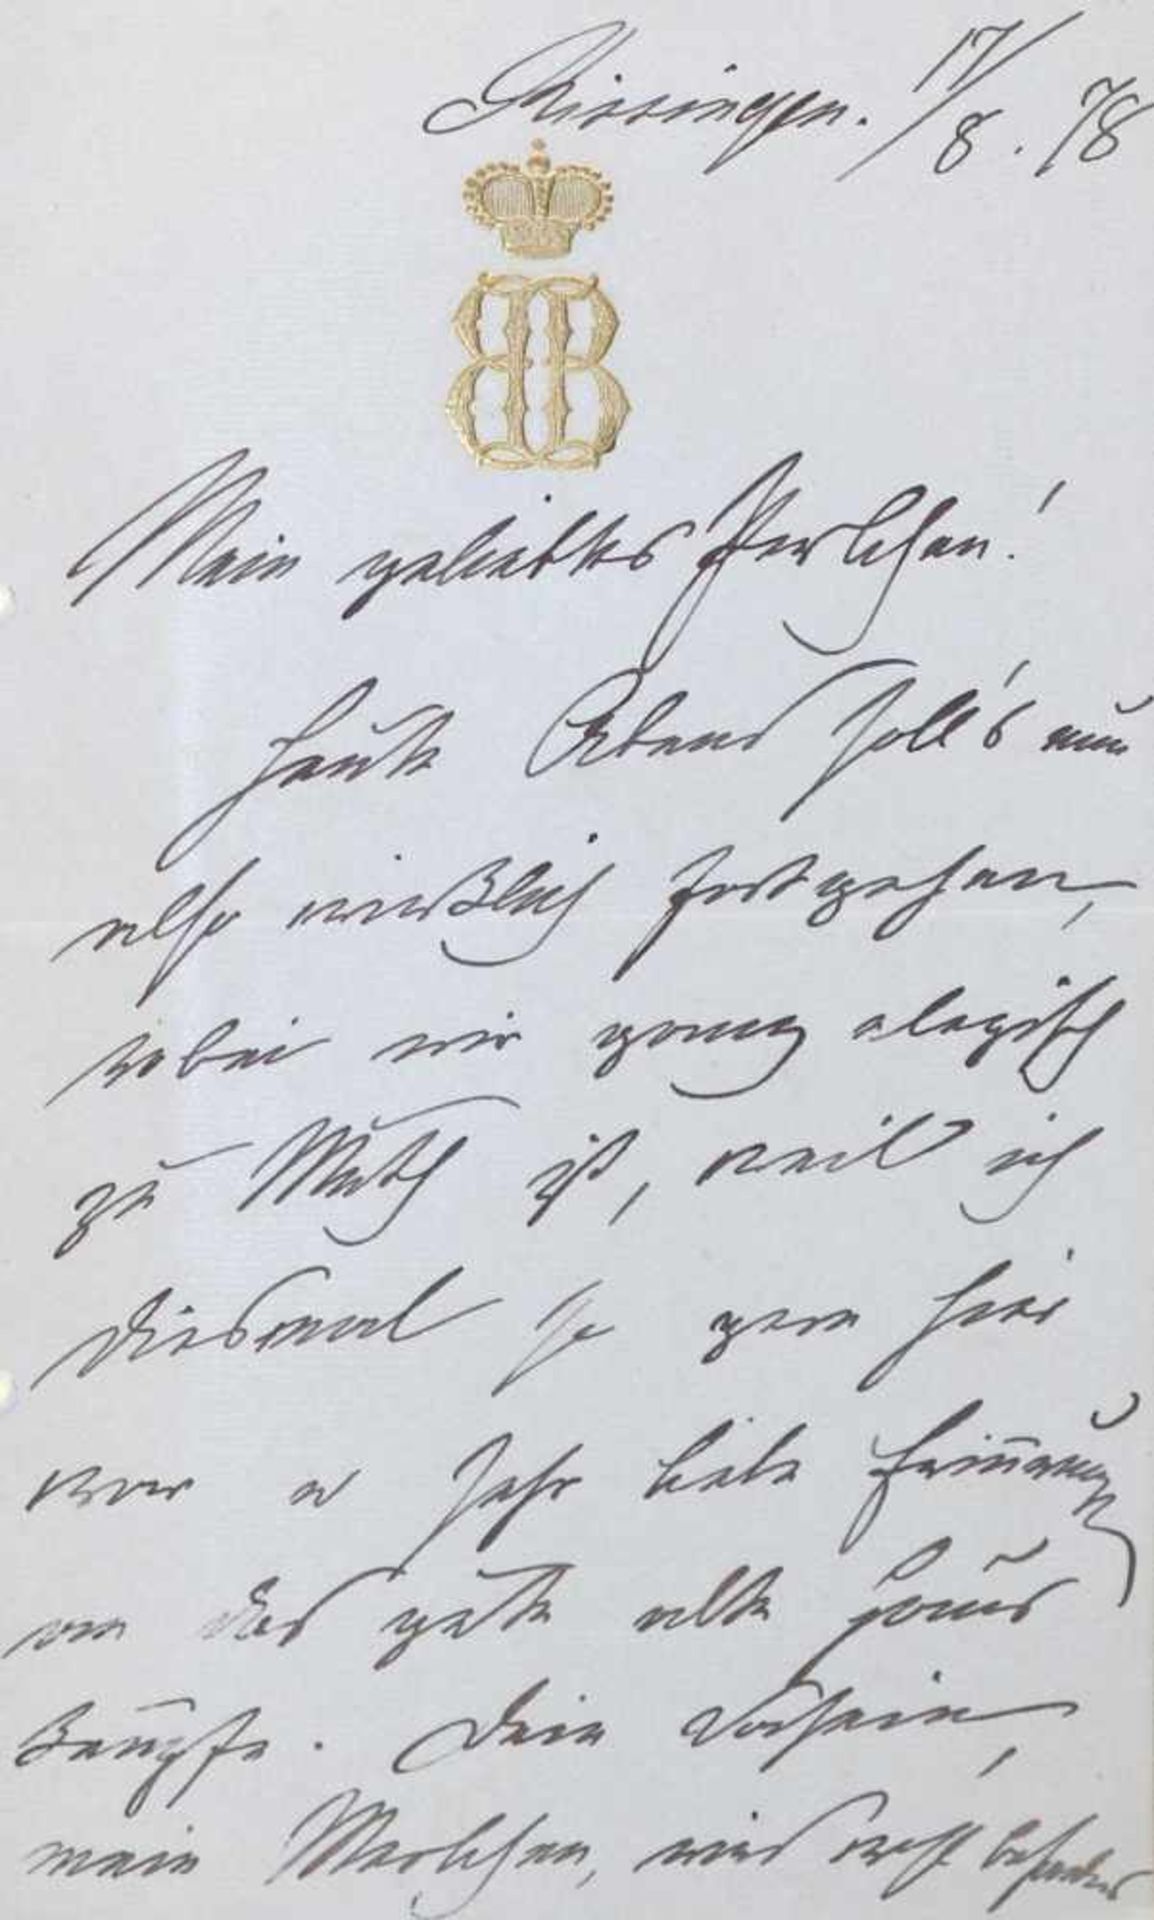 Kissingen. 17/8. 78
BB
Mein geliebtes Perlchen!
Heute Abend soll's nun
also wirklich fortgehen,
wobei mir ganz elegisch
zu Muth ist, weil ich
diesmal so gern hier
war u sehr liebe Erinnerung
an das gute alte Haus
knüpfe. Dein Dasein,
mein Perlchen, wird mir besonders